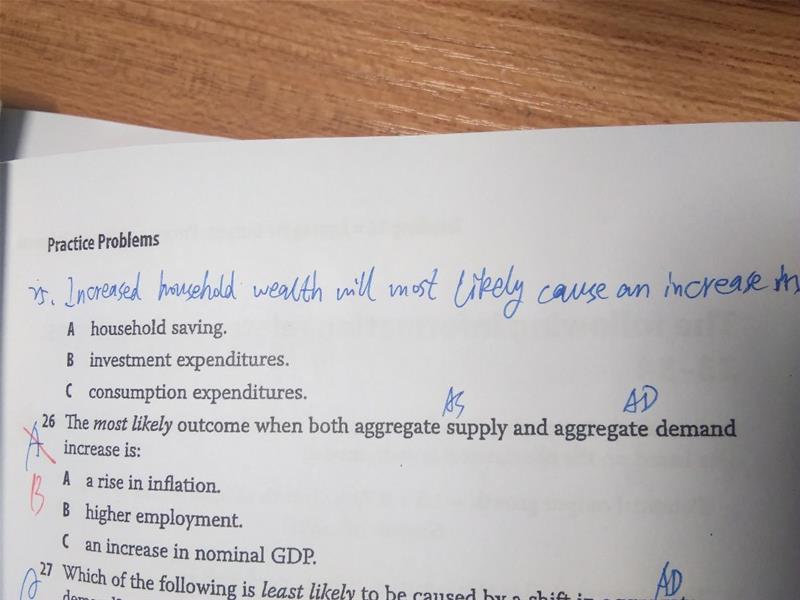 Practice Problems
25. Increased household wealth will most likely cause an increase in
A household saving.
B investment expenditures.
C consumption expenditures.
AS AD
26 The most likely outcome when both aggregate supply and aggregate demand
A increase is:
A a rise in inflation.
B
B higher employment.
C an increase in nominal GDP.
AD
27 Which of the following is least likely to be caused by a shift in